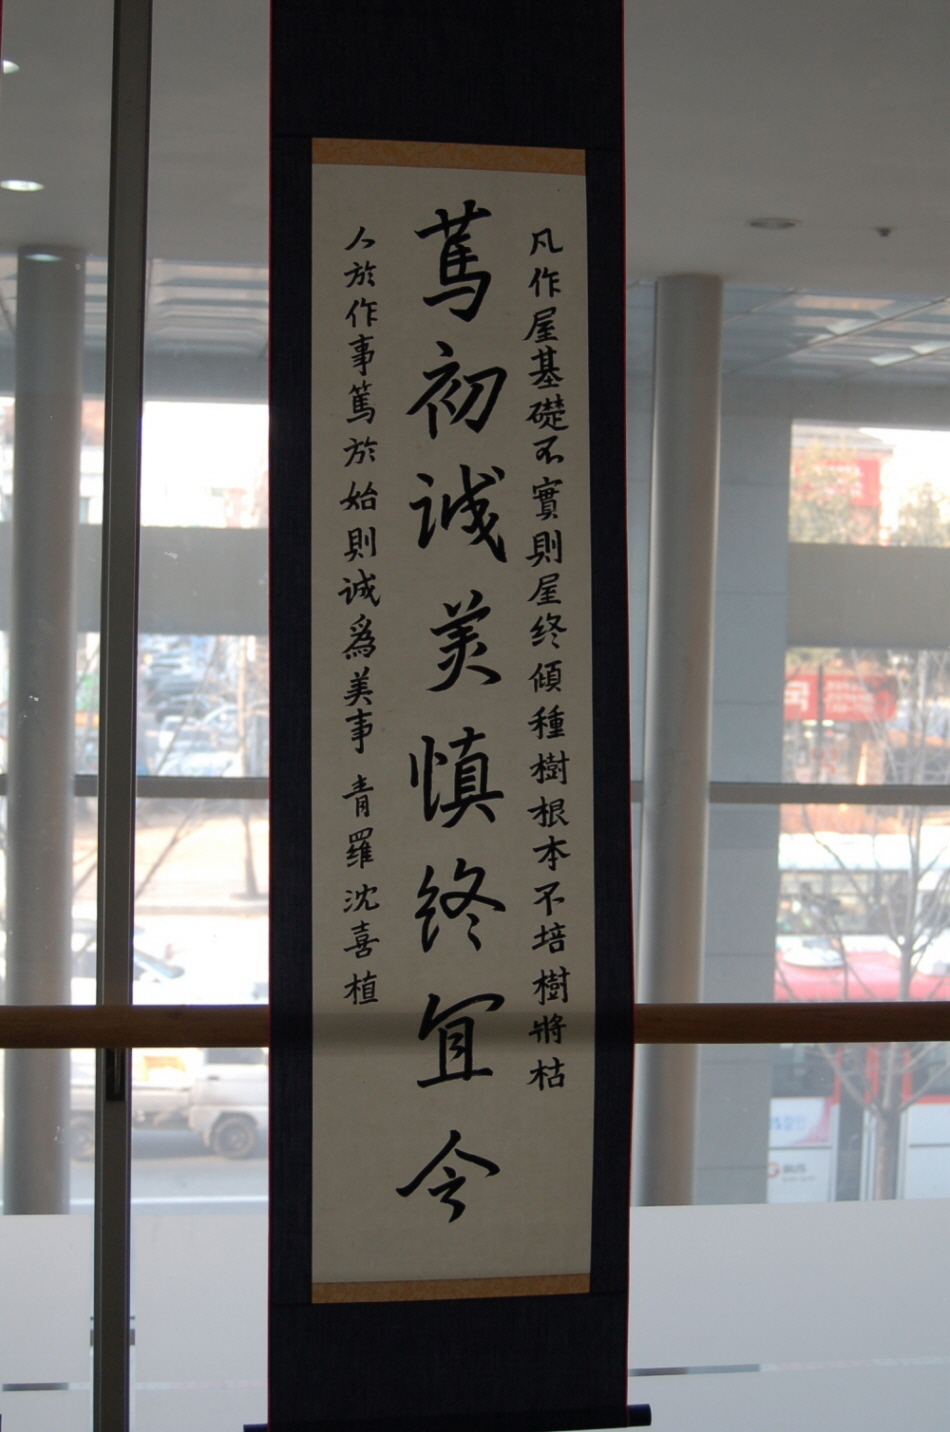 凡作屋基礎不實則屋终傾種樹根本不培樹將枯
篤初誠美慎终宜令
人於作事篤於始則誠爲美事 青羅沈喜植
BUS